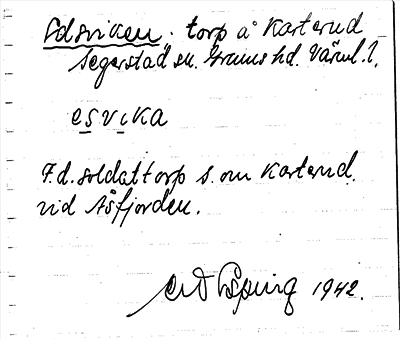 Edsviken. torp å Karterud
Segerstad sn. Grums hd. Värml. l.
esvika
F.d. soldattorp s. om Karterud
vid Åsfjorden.
1942.